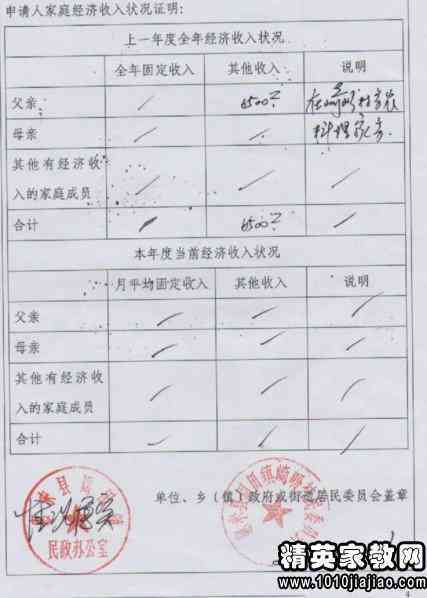 申请人家庭经济收入状况证明:
上一年度全年经济收入状况
全年固定收入 其他收入 说明
父亲 / 6500元
母亲 / / 料理家务
其他有经济收入的家庭成员 / / /
合计 / 6500元 /
本年度当前经济收入状况
月平均固定收入 其他收入 说明
父亲 / / /
母亲 / / /
其他有经济收入的家庭成员 / / /
合计 / / /
单位、乡（镇）政府或街道居民委员会盖章
情况属实
民政办公室
精英家教网
www.1010jiajiao.com
4